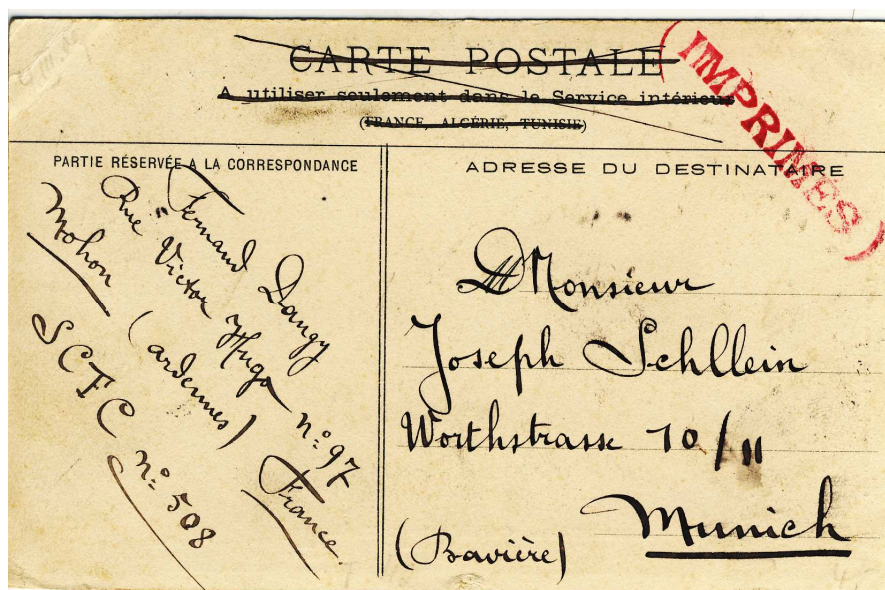 CARTE POSTALE
A utiliser seulement dans le Service intérieur
(FRANCE, ALGÉRIE, TUNISIE)
(IMPRIMÉS)
PARTIE RÉSERVÉE A LA CORRESPONDANCE
Fernand Dangy
Rue Victor Hugo n° 97
Mohon (ardennes) France
SCFC n° 508
ADRESSE DU DESTINATAIRE
Monsieur
Joseph Schllein
Worthstrasse 10/II
Munich
(Bavière)